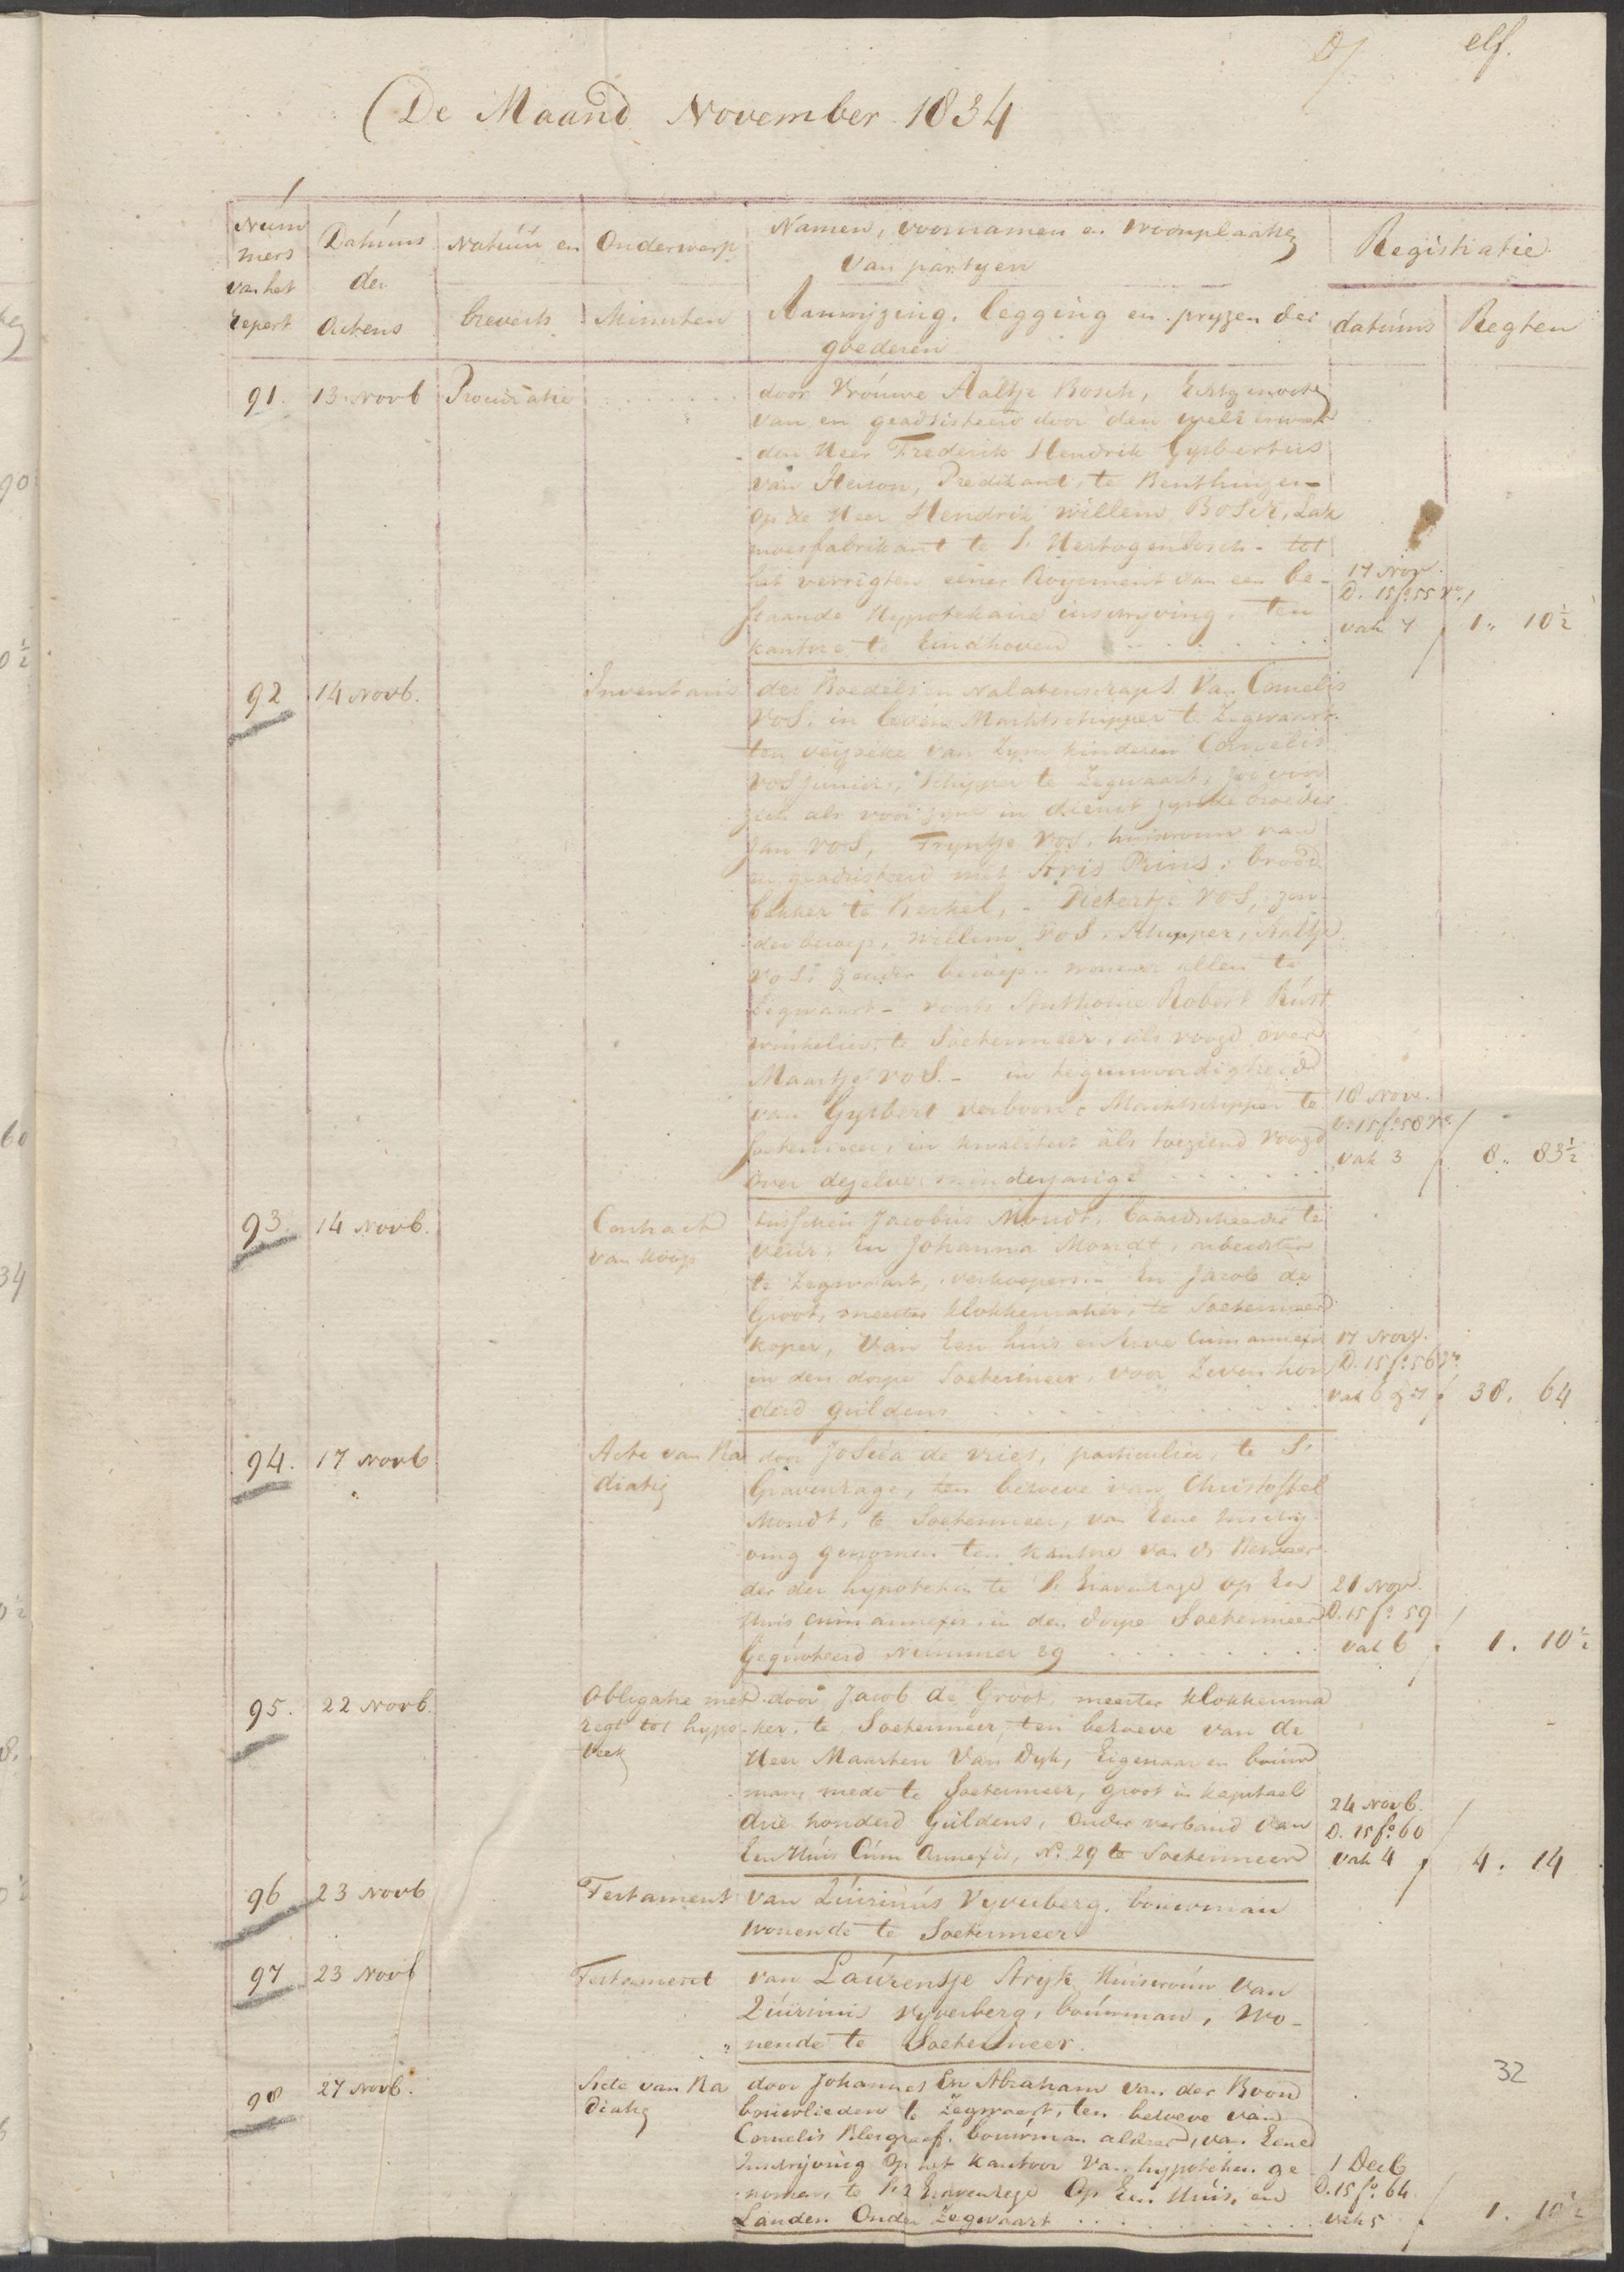 elf.
De Maand November 1834
Num
mers
van het
repert
Datums
der
Actens
Natuur en
brevets
Onderwerp
Minuten
Namen, voornamen en woonplaatse
van partyen
Aanwyzing, legging en pryzen der
goederen
Registratie
datums
Regten
91. 13 Novb Procuratie
door Vrouwe Aaltje Bosch, Echtgenoote
van en geadsisteerd door den
den Heer Frederik Hendrik Gysbertus
van Predikant, te Benthuizen
op de Heer Hendrik Willem Bosch, Lak
moesfabrikant te S. Hertogenbosch - tot
het verrigten eener Royement van een be-
staande Hypotekaire inschryving, ten
kantore te Eindhoven
17 Nov.
D. 15 fo. 55 Vo.
vak 7
1. 10½
92 14 Novb. Inventaris
der Boedel en Nalatenschap van Cornelis
Vos, in leven Marktschipper te Zegwaart
ten verzoeke van zyne kinderen Cornelis
Vos junior, Schipper te Zegwaart, zoo voor
zich als voor zyne in dienst zynde broeder
Jan Vos, Tryntje Vos, huisvrouw van
en geadsisteerd met Aris Prins, brood
bakker te Berkel, - Pietertje Vos, zon
der beroep, Willem Vos, Schipper, Aaltje
Vos, zonder beroep, wonende allen te
Zegwaart - voorts Anthonie Robert Rust
winkelier te Soetermeer, als voogd over
Maartje Vos. - in tegenwoordigheid
van Gysbert Verboon, Marktschipper te
Soetermeer, in kwaliteit als toeziend voogd
over dezelve minderjarige
18 Nov.
D. 15 fo. 58 Vo.
vak 3
8. 83½
93. 14 Novb.
Contract
van koop
tusschen Jacobus Mondt, baardscheerder te
Veur, en Johanna Mondt, arbeidster
te Zegwaart, verkoopers - En Jacob de
Groot, meester klokkemaker, te Soetermeer
koper, van Een huis en Erve cum annexis
in den dorpe Soetermeer, voor Zeven hon
derd guldens
17 Nov.
D. 15 fo. 56 Vo.
vak 6 & 7
38. 64
94. 17 Novb
Acte van Ra
diatie
door Josua de Vries, particulier, te S.
Gravenhage, ten behoeve van Christoffel
Mondt, te Soetermeer, van Eene Inschry
ving genomen ten kantore van de Bewaar
der der hypotheken te S. Gravenhage op Een
Huis cum annexis in den dorpe Soetermeer
Gequoteerd Nummer 29
21 Nov.
D. 15 fo. 59
vak 6
1. 10½
95. 22 Novb.
Obligatie met
regt tot hypo
theek
door Jacob de Groot, meester klokkema
ker, te Soetermeer, ten behoeve van de
Heer Maarten Van Dyk, Eigenaar en bouw
man, mede te Soetermeer, groot in kapitaal
drie honderd Guldens, onder verband van
Een Huis Cum Annexis, No. 29 te Soetermeer
24 Novb.
D. 15 fo. 60
vak 4
4. 14
96 23 Novb Testament
van Quirinus Vyverberg, bouwman
wonende te Soetermeer
97 23 Novb Testament
van Laurentje Stryk Huisvrouw van
Quirinus Vyverberg, bouwman, wo-
nende te Soetermeer.
32
98 27 Novb.
Acte van Ra
diatie
door Johannes En Abraham van der Boon
bouwlieden te Zegwaart, ten behoeve van
Cornelis Blesgraaf, bouwman aldaar, van Eene
Inschryving Op het kantoor van hypotheken ge
nomen te S. Gravenhage Op Een Huis, en
Landen Onder Zegwaart
1 Decb
D. 15 fo. 64
vak 5
1. 10½